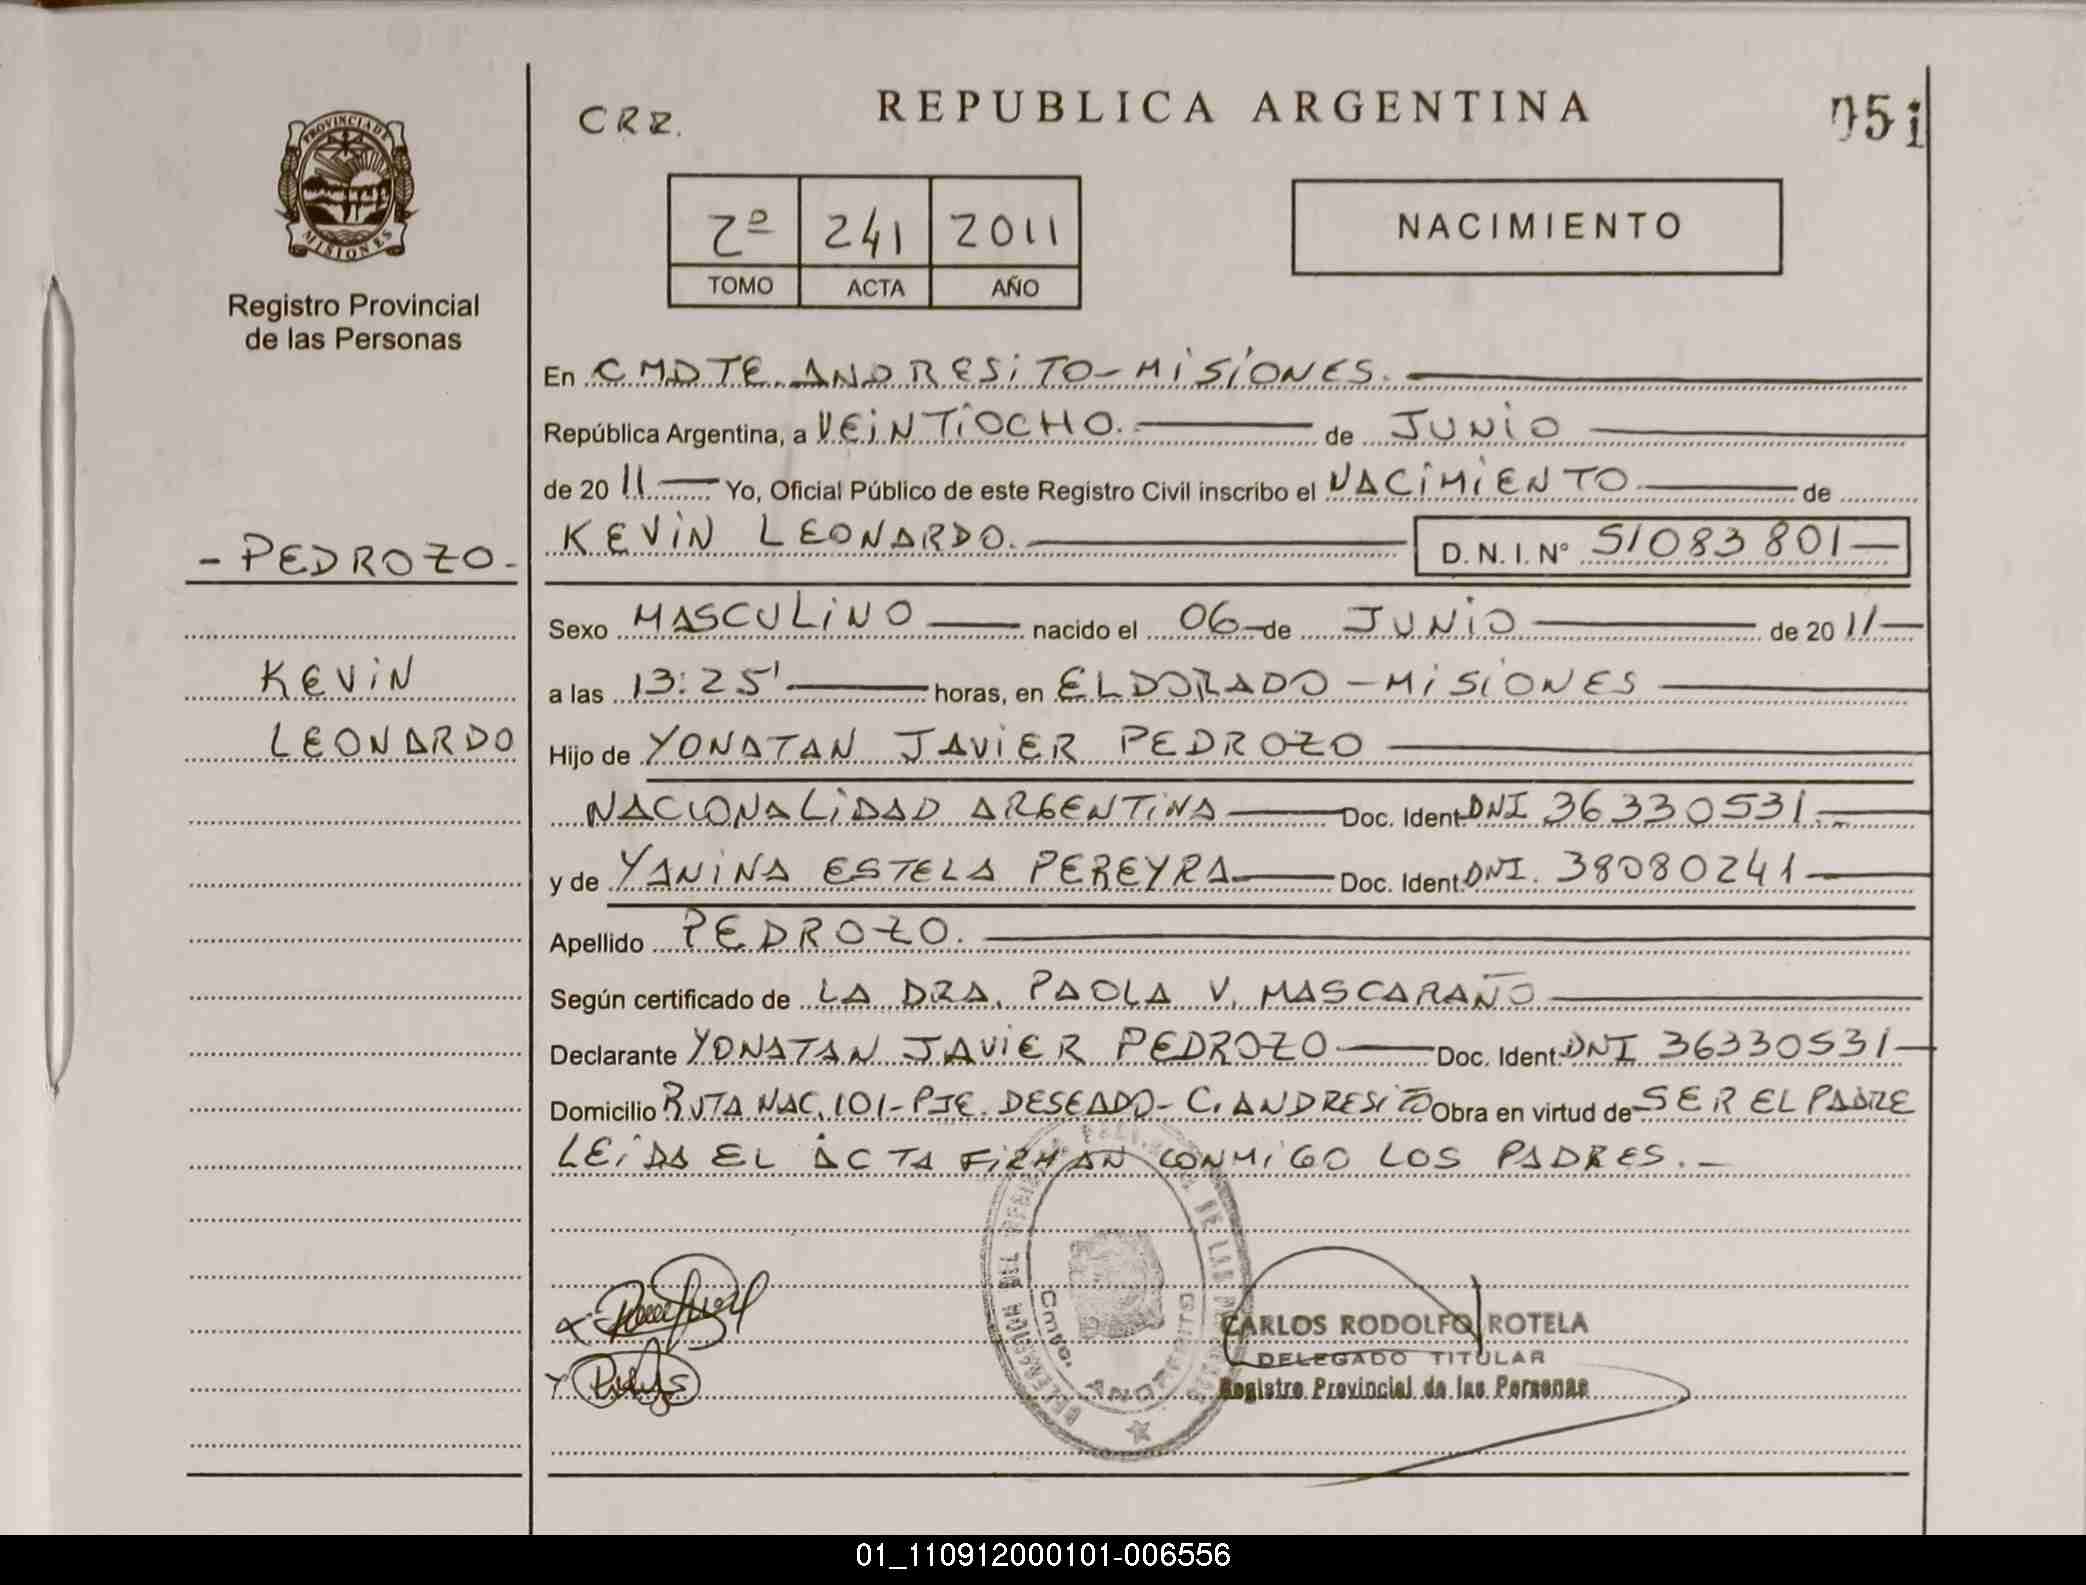 CRZ.
REPUBLICA ARGENTINA
051
PROVINCIA DE MISIONES
Registro Provincial
de las Personas
2º 241 2011
TOMO ACTA AÑO
NACIMIENTO
En CMDTE. ANDRESITO - MISIONES.
República Argentina, a VEINTIOCHO. de JUNIO
de 20 11 Yo, Oficial Público de este Registro Civil inscribo el NACIMIENTO de
KEVIN LEONARDO. D. N. I. Nº 51083801
- PEDROZO -
KEVIN
LEONARDO
Sexo MASCULINO nacido el 06 de JUNIO de 20 11
a las 13:25' horas, en ELDORADO - MISIONES
Hijo de YONATAN JAVIER PEDROZO
NACIONALIDAD ARGENTINA Doc. Ident. DNI 36330531.
y de YANINA ESTELA PEREYRA Doc. Ident. DNI. 38080241
Apellido PEDROZO.
Según certificado de LA DRA. PAOLA V. MASCARAÑO
Declarante YONATAN JAVIER PEDROZO Doc. Ident. DNI 36330531
Domicilio RUTA NAC. 101 - PJE. DESEADO - C. ANDRESITO Obra en virtud de SER EL PADRE
LEIDA EL ACTA FIRMAN CONMIGO LOS PADRES. -
DELEGACION DEL REGISTRO PROVINCIAL DE LAS PERSONAS
Cmte. ANDRESITO
CARLOS RODOLFO ROTELA
DELEGADO TITULAR
Registro Provincial de las Personas
01_110912000101-006556